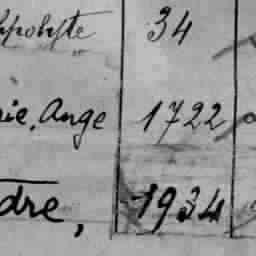 ppolyte 34
rie. Ange 1722
dre, 1934